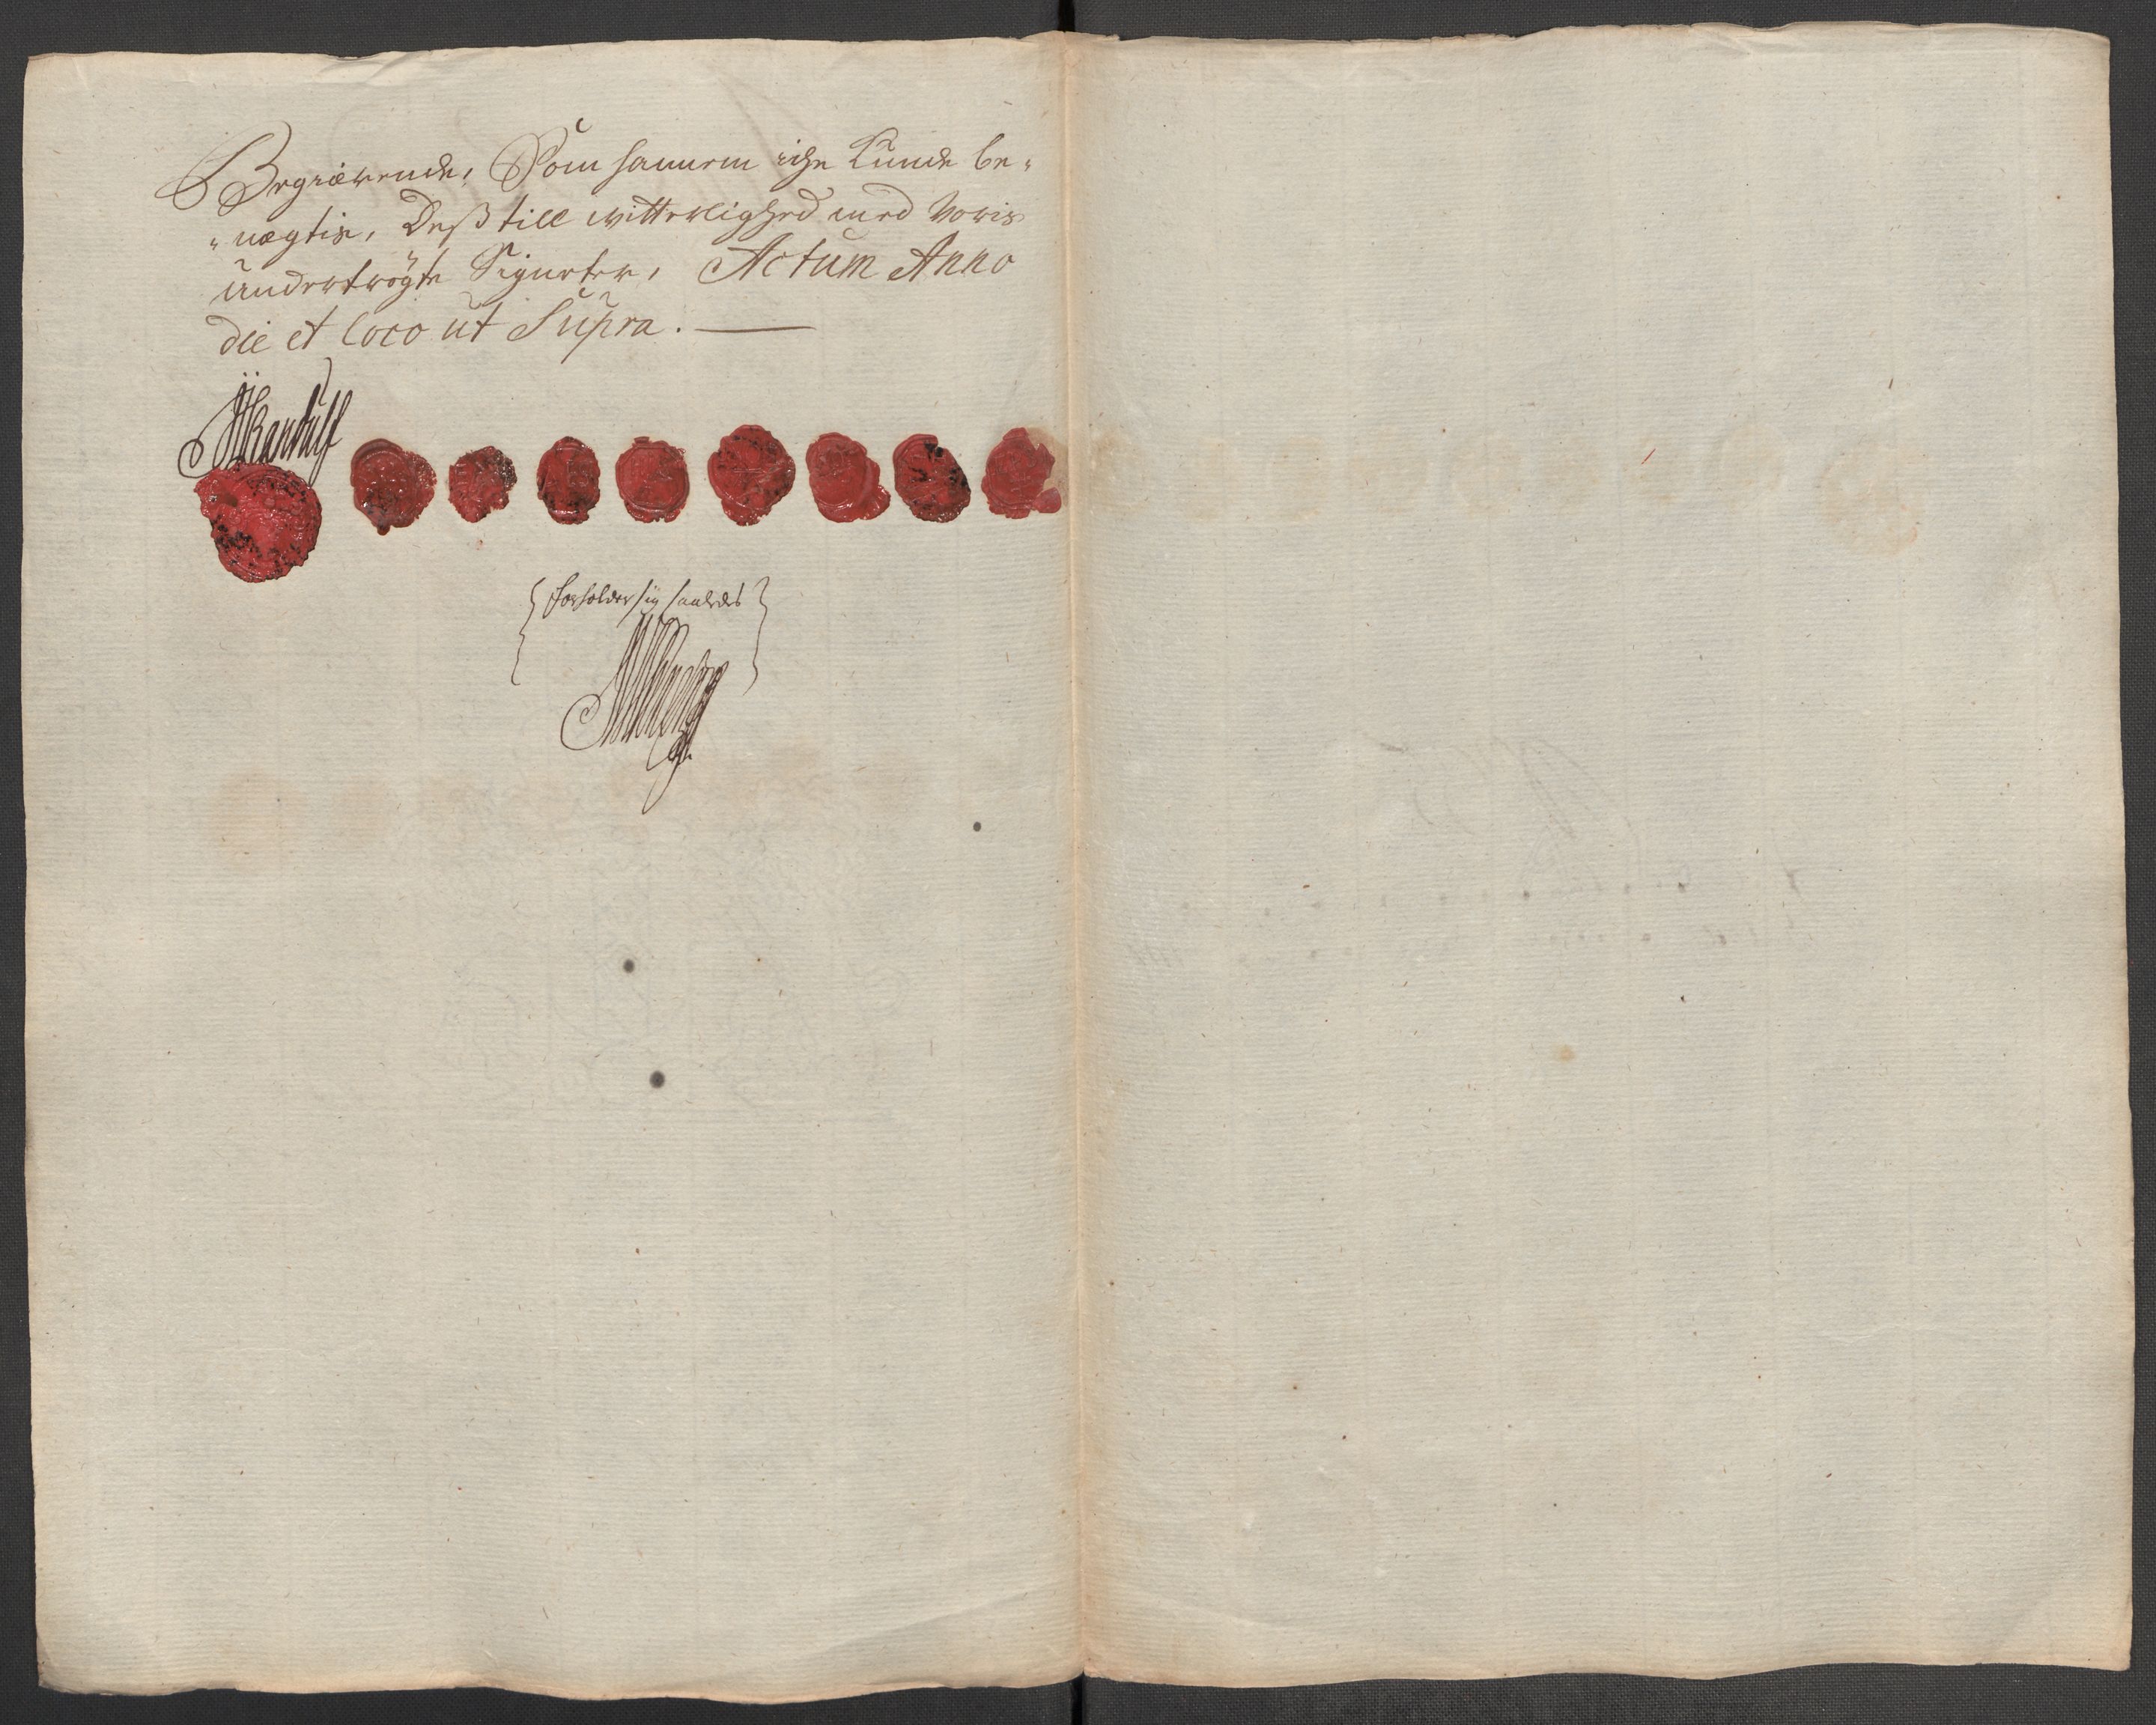 Begiærende, Som hannem iche Kunde be„
„nægtis, Deß till witterlighed med Voris
undertrögte Signeter, Actum Anno
die et loco ut Supra.
forholder sig saaledes